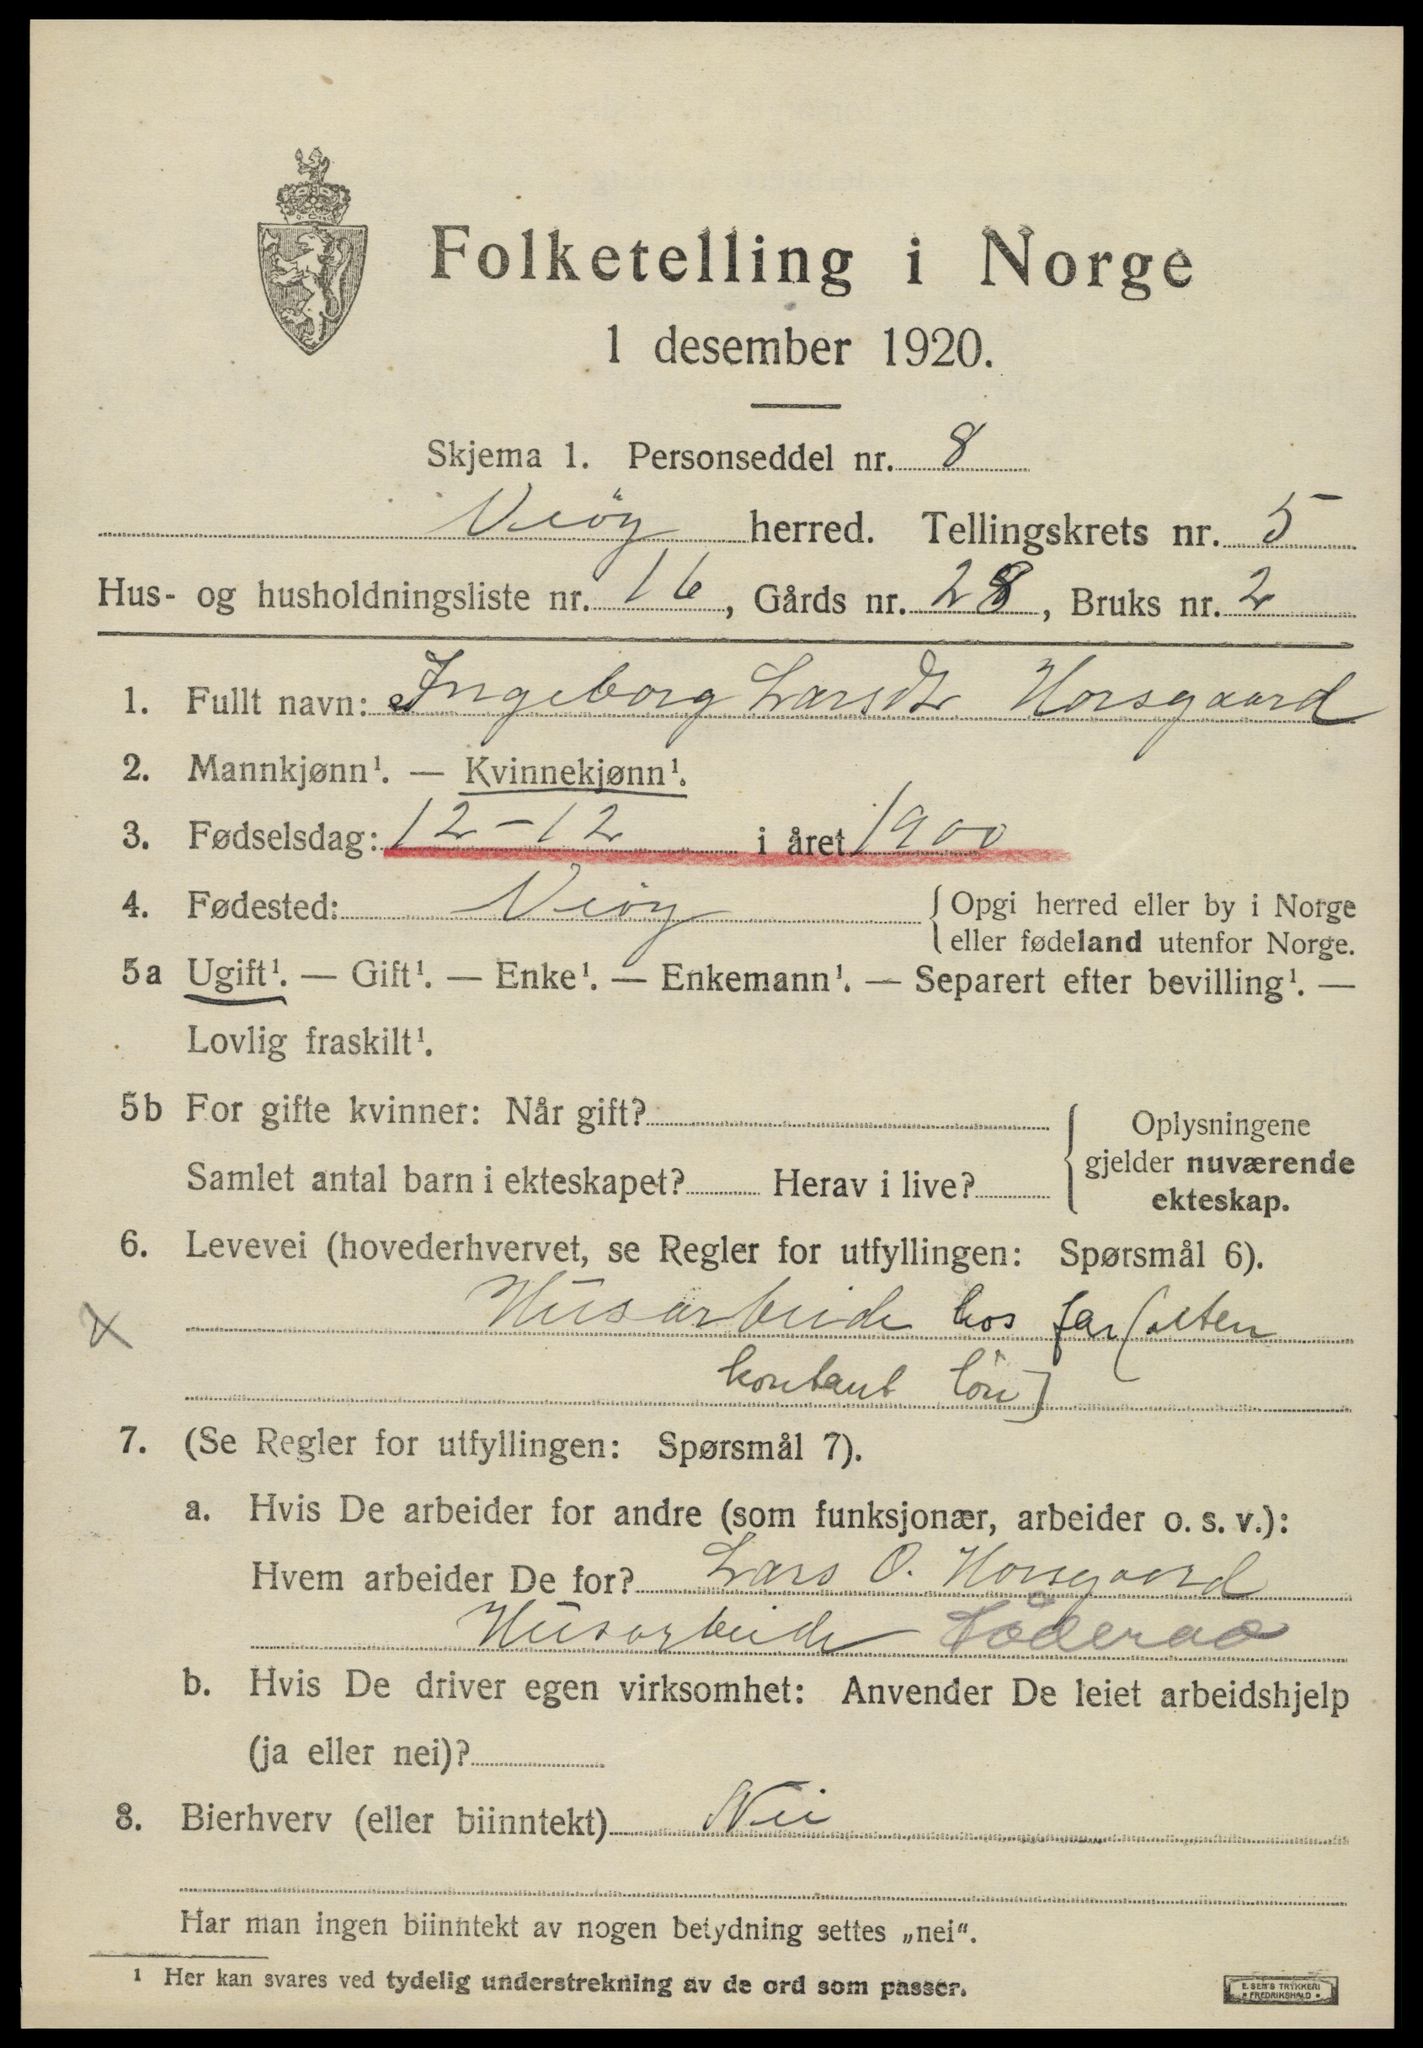 Folketelling i Norge
1 desember 1920.
Skjema 1. Personseddel nr. 8
Veöy herred. Tellingskrets nr. 5
Hus- og husholdningsliste nr. 16, Gårds nr. 28, Bruks nr. 2
1. Fullt navn: Ingeborg Larsdtr Horsgaard
2. Mannkjønn¹. — Kvinnekjønn¹.
3. Fødselsdag: 12-12 i året 1900
4. Fødested: Veöy {Opgi herred eller by i Norge
eller fødeland utenfor Norge.
5a Ugift¹. — Gift¹. — Enke¹. — Enkemann¹. — Separert efter bevilling¹. —
Lovlig fraskilt¹.
5b For gifte kvinner: Når gift? { Oplysningene
gjelder nuværende
Samlet antal barn i ekteskapet? Herav i live? ekteskap.
6. Levevei (hovederhvervet, se Regler for utfyllingen: Spørsmål 6).
x Husarbeide hos far (uten
kontant lön)
7. (Se Regler for utfyllingen: Spørsmål 7).
a. Hvis De arbeider for andre (som funksjonær, arbeider o. s. v.):
Hvem arbeider De for? Lars O. Horsgaard
Husarbeide
b. Hvis De driver egen virksomhet: Anvender De leiet arbeidshjelp
(ja eller nei)?
8. Bierhverv (eller biinntekt) Nei
Har man ingen biinntekt av nogen betydning settes „nei“.
¹ Her kan svares ved tydelig understrekning av de ord som passer.
E. SEM'S TRYKKERI
• FREDRIKSHALD •